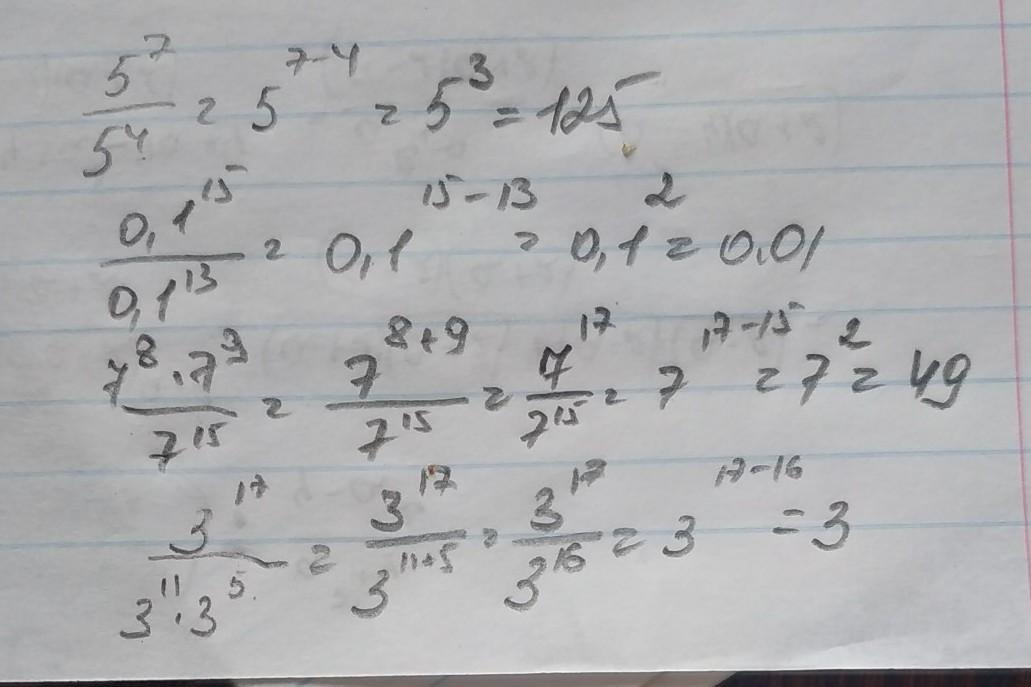 5⁷/5⁴ = 5⁷⁻⁴ = 5³ = 125
0,1¹⁵/0,1¹³ = 0,1¹⁵⁻¹³ = 0,1² = 0.01
7⁸·7⁹/7¹⁵ = 7⁸⁺⁹/7¹⁵ = 7¹⁷/7¹⁵ = 7¹⁷⁻¹⁵ = 7² = 49
3¹⁷/3¹¹·3⁵ = 3¹⁷/3¹¹⁺⁵ = 3¹⁷/3¹⁶ = 3¹⁷⁻¹⁶ = 3